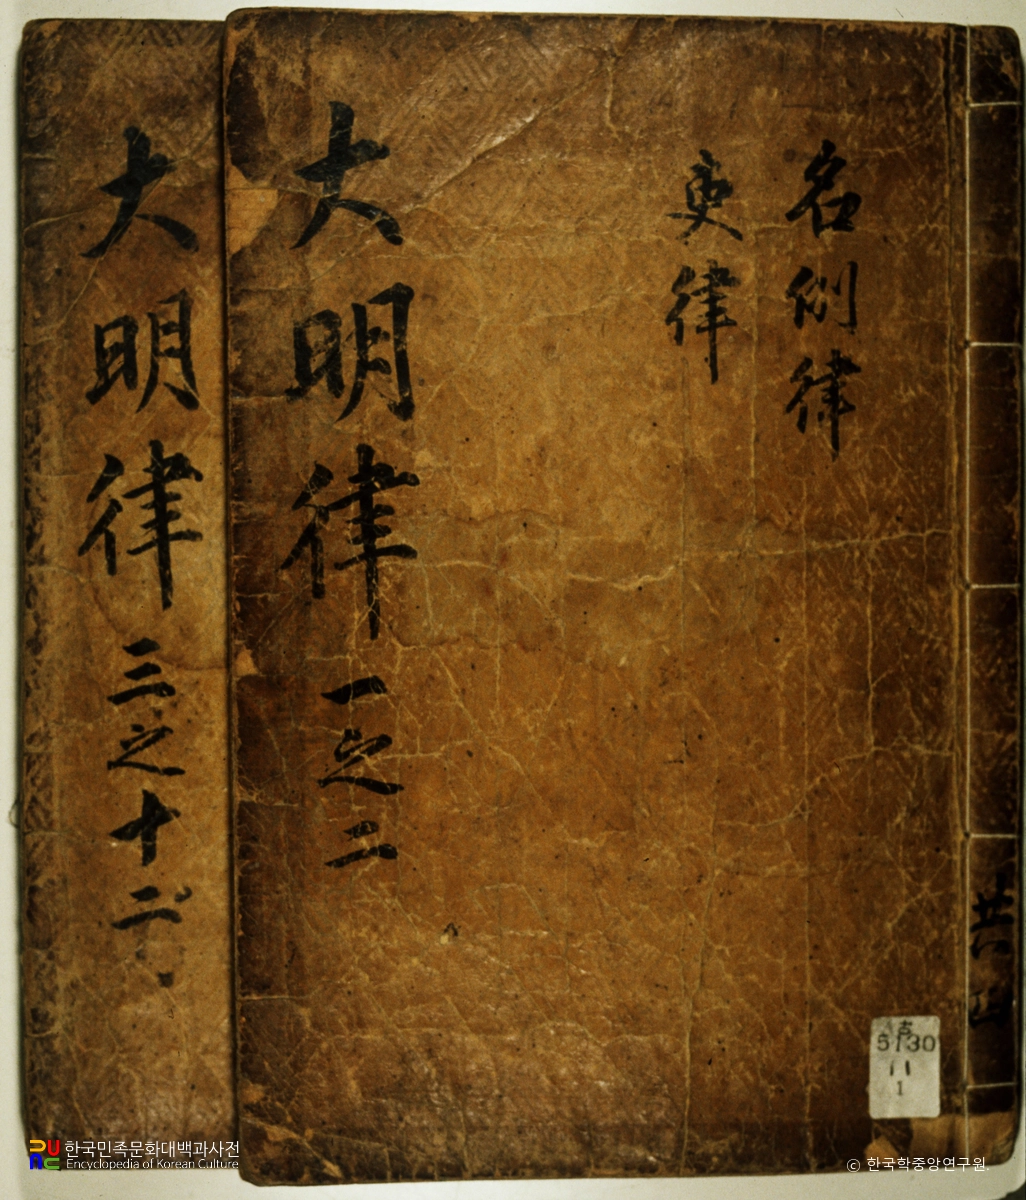 名例律
吏律
大明律 一之二
大明律 三之十二
共四
古
5130
11
1
한국민족문화대백과사전
Encyclopedia of Korean Culture
© 한국학중앙연구원